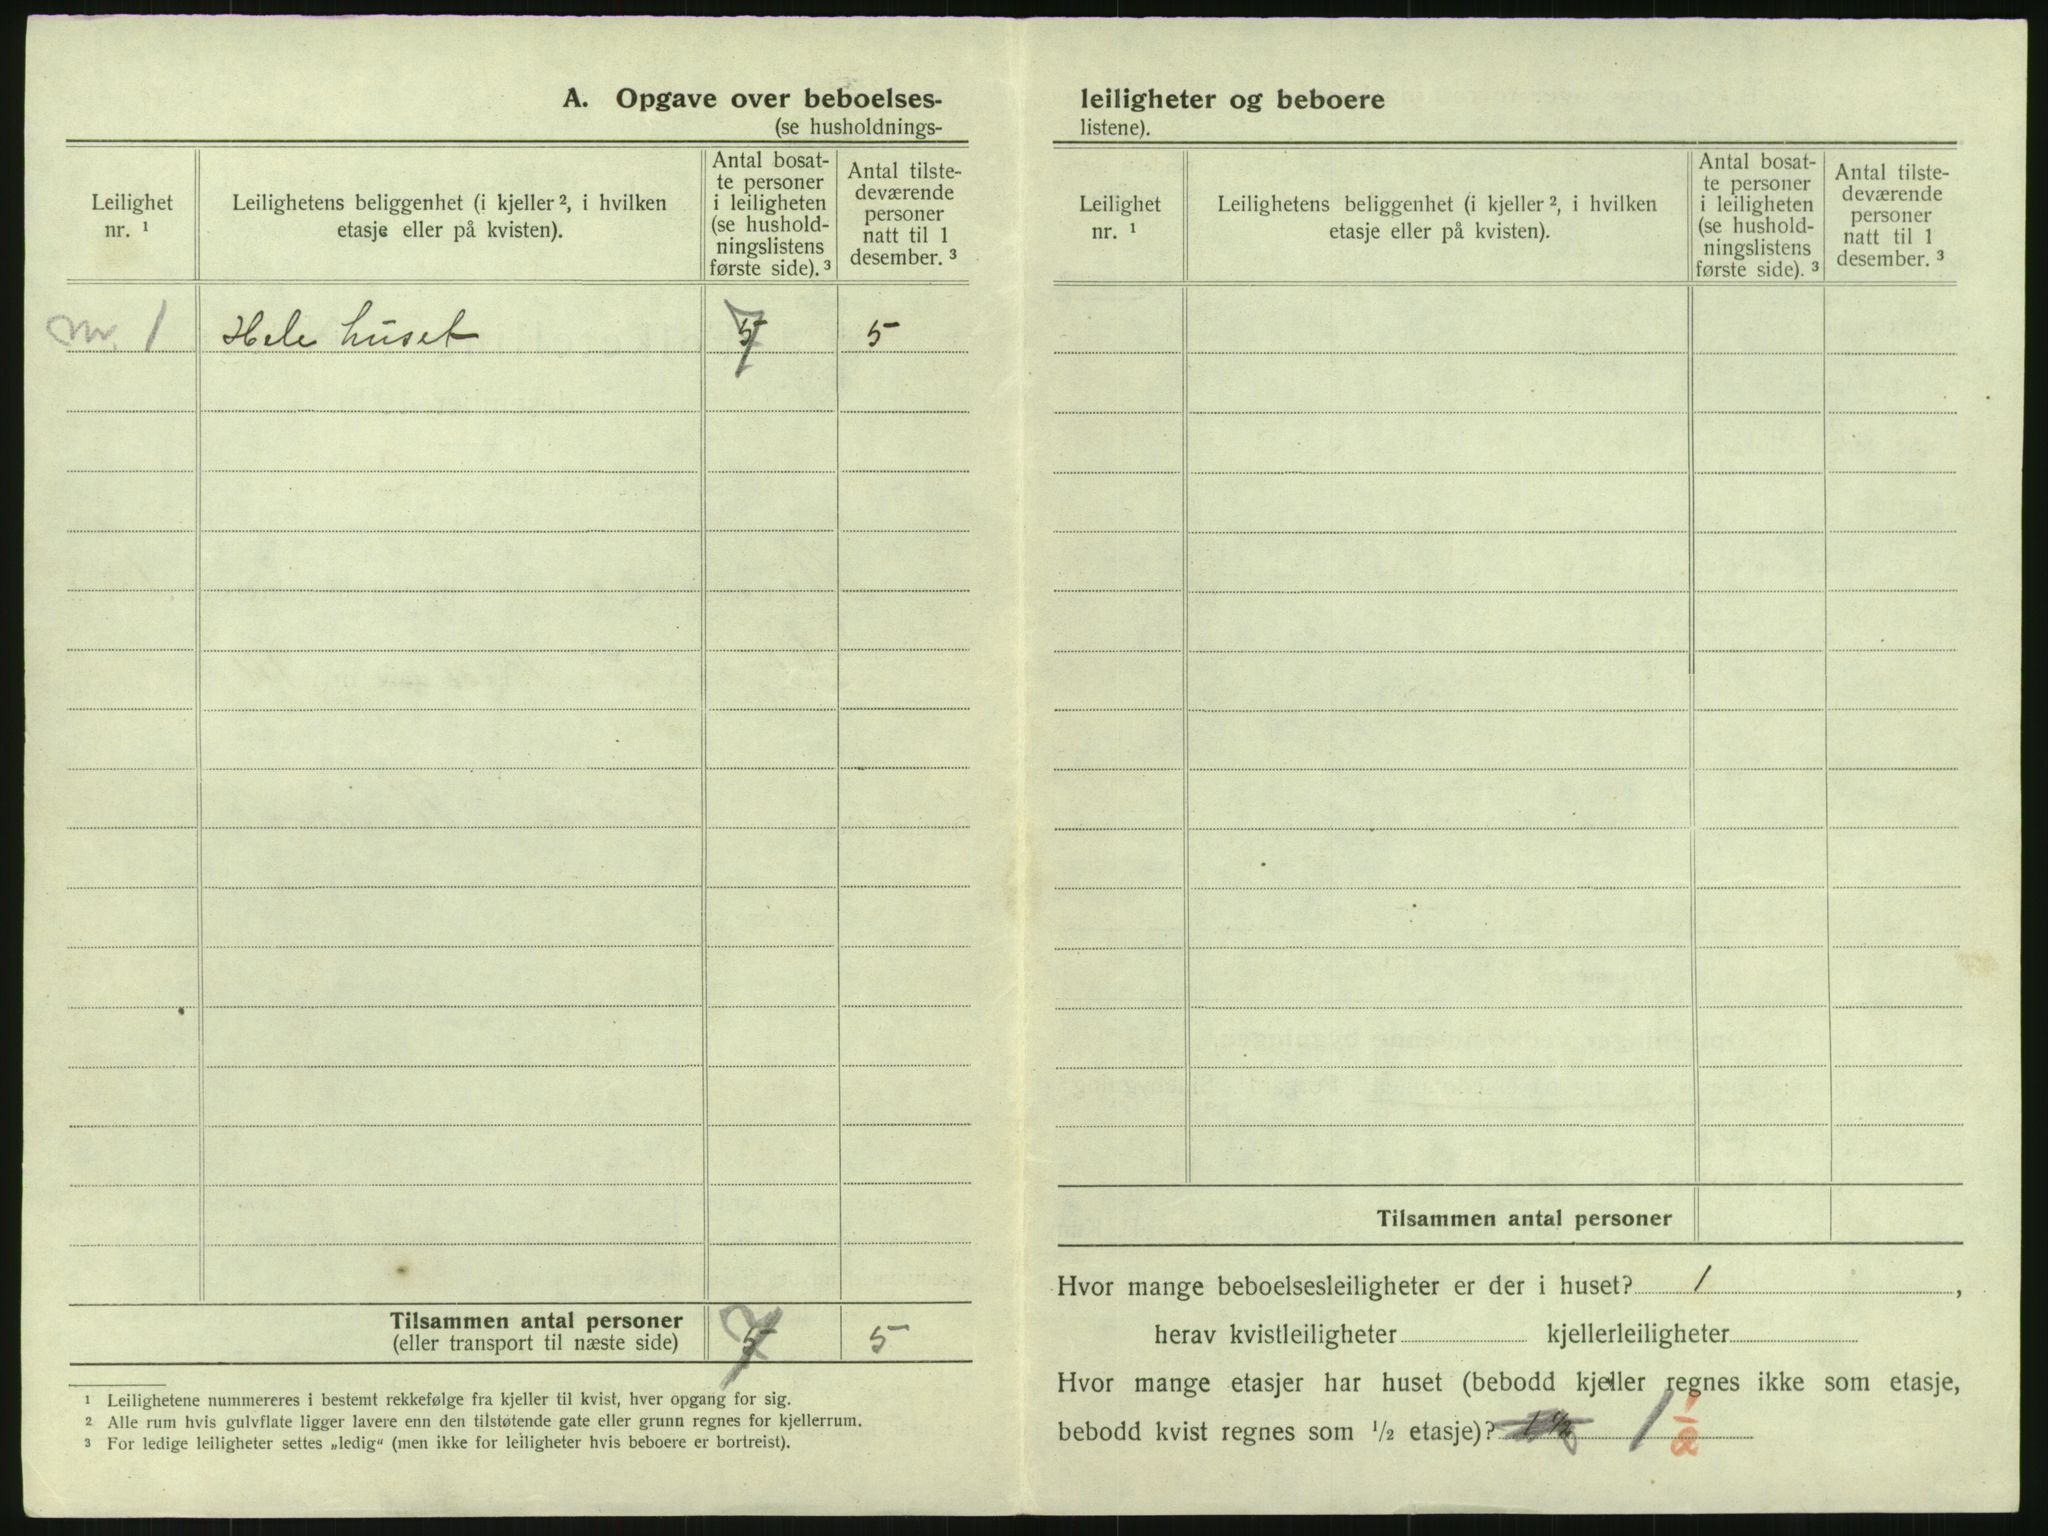 A. Opgave over beboelses-
(se husholdnings-
Leilighet nr. ¹
Leilighetens beliggenhet (i kjeller ², i hvilken etasje eller på kvisten).
Antal bosat-
te personer
i leiligheten
(se hushold-
ningslistens
første side). ³
Antal tilste-
deværende
personer
natt til 1
desember. ³
nr. 1 Hele huset 7 5
Tilsammen antal personer 7 5
(eller transport til næste side)
¹ Leilighetene nummereres i bestemt rekkefølge fra kjeller til kvist, hver opgang for sig.
² Alle rum hvis gulvflate ligger lavere enn den tilstøtende gate eller grunn regnes for kjellerrum.
³ For ledige leiligheter settes „ledig“ (men ikke for leiligheter hvis beboere er bortreist).
leiligheter og beboere
listene).
Leilighet nr. ¹
Leilighetens beliggenhet (i kjeller ², i hvilken etasje eller på kvisten).
Antal bosat-
te personer
i leiligheten
(se hushold-
ningslistens
første side). ³
Antal tilste-
deværende
personer
natt til 1
desember. ³
Tilsammen antal personer
Hvor mange beboelsesleiligheter er der i huset? 1,
herav kvistleiligheter kjellerleiligheter
Hvor mange etasjer har huset (bebodd kjeller regnes ikke som etasje,
bebodd kvist regnes som ½ etasje)? 1½ 1 ½